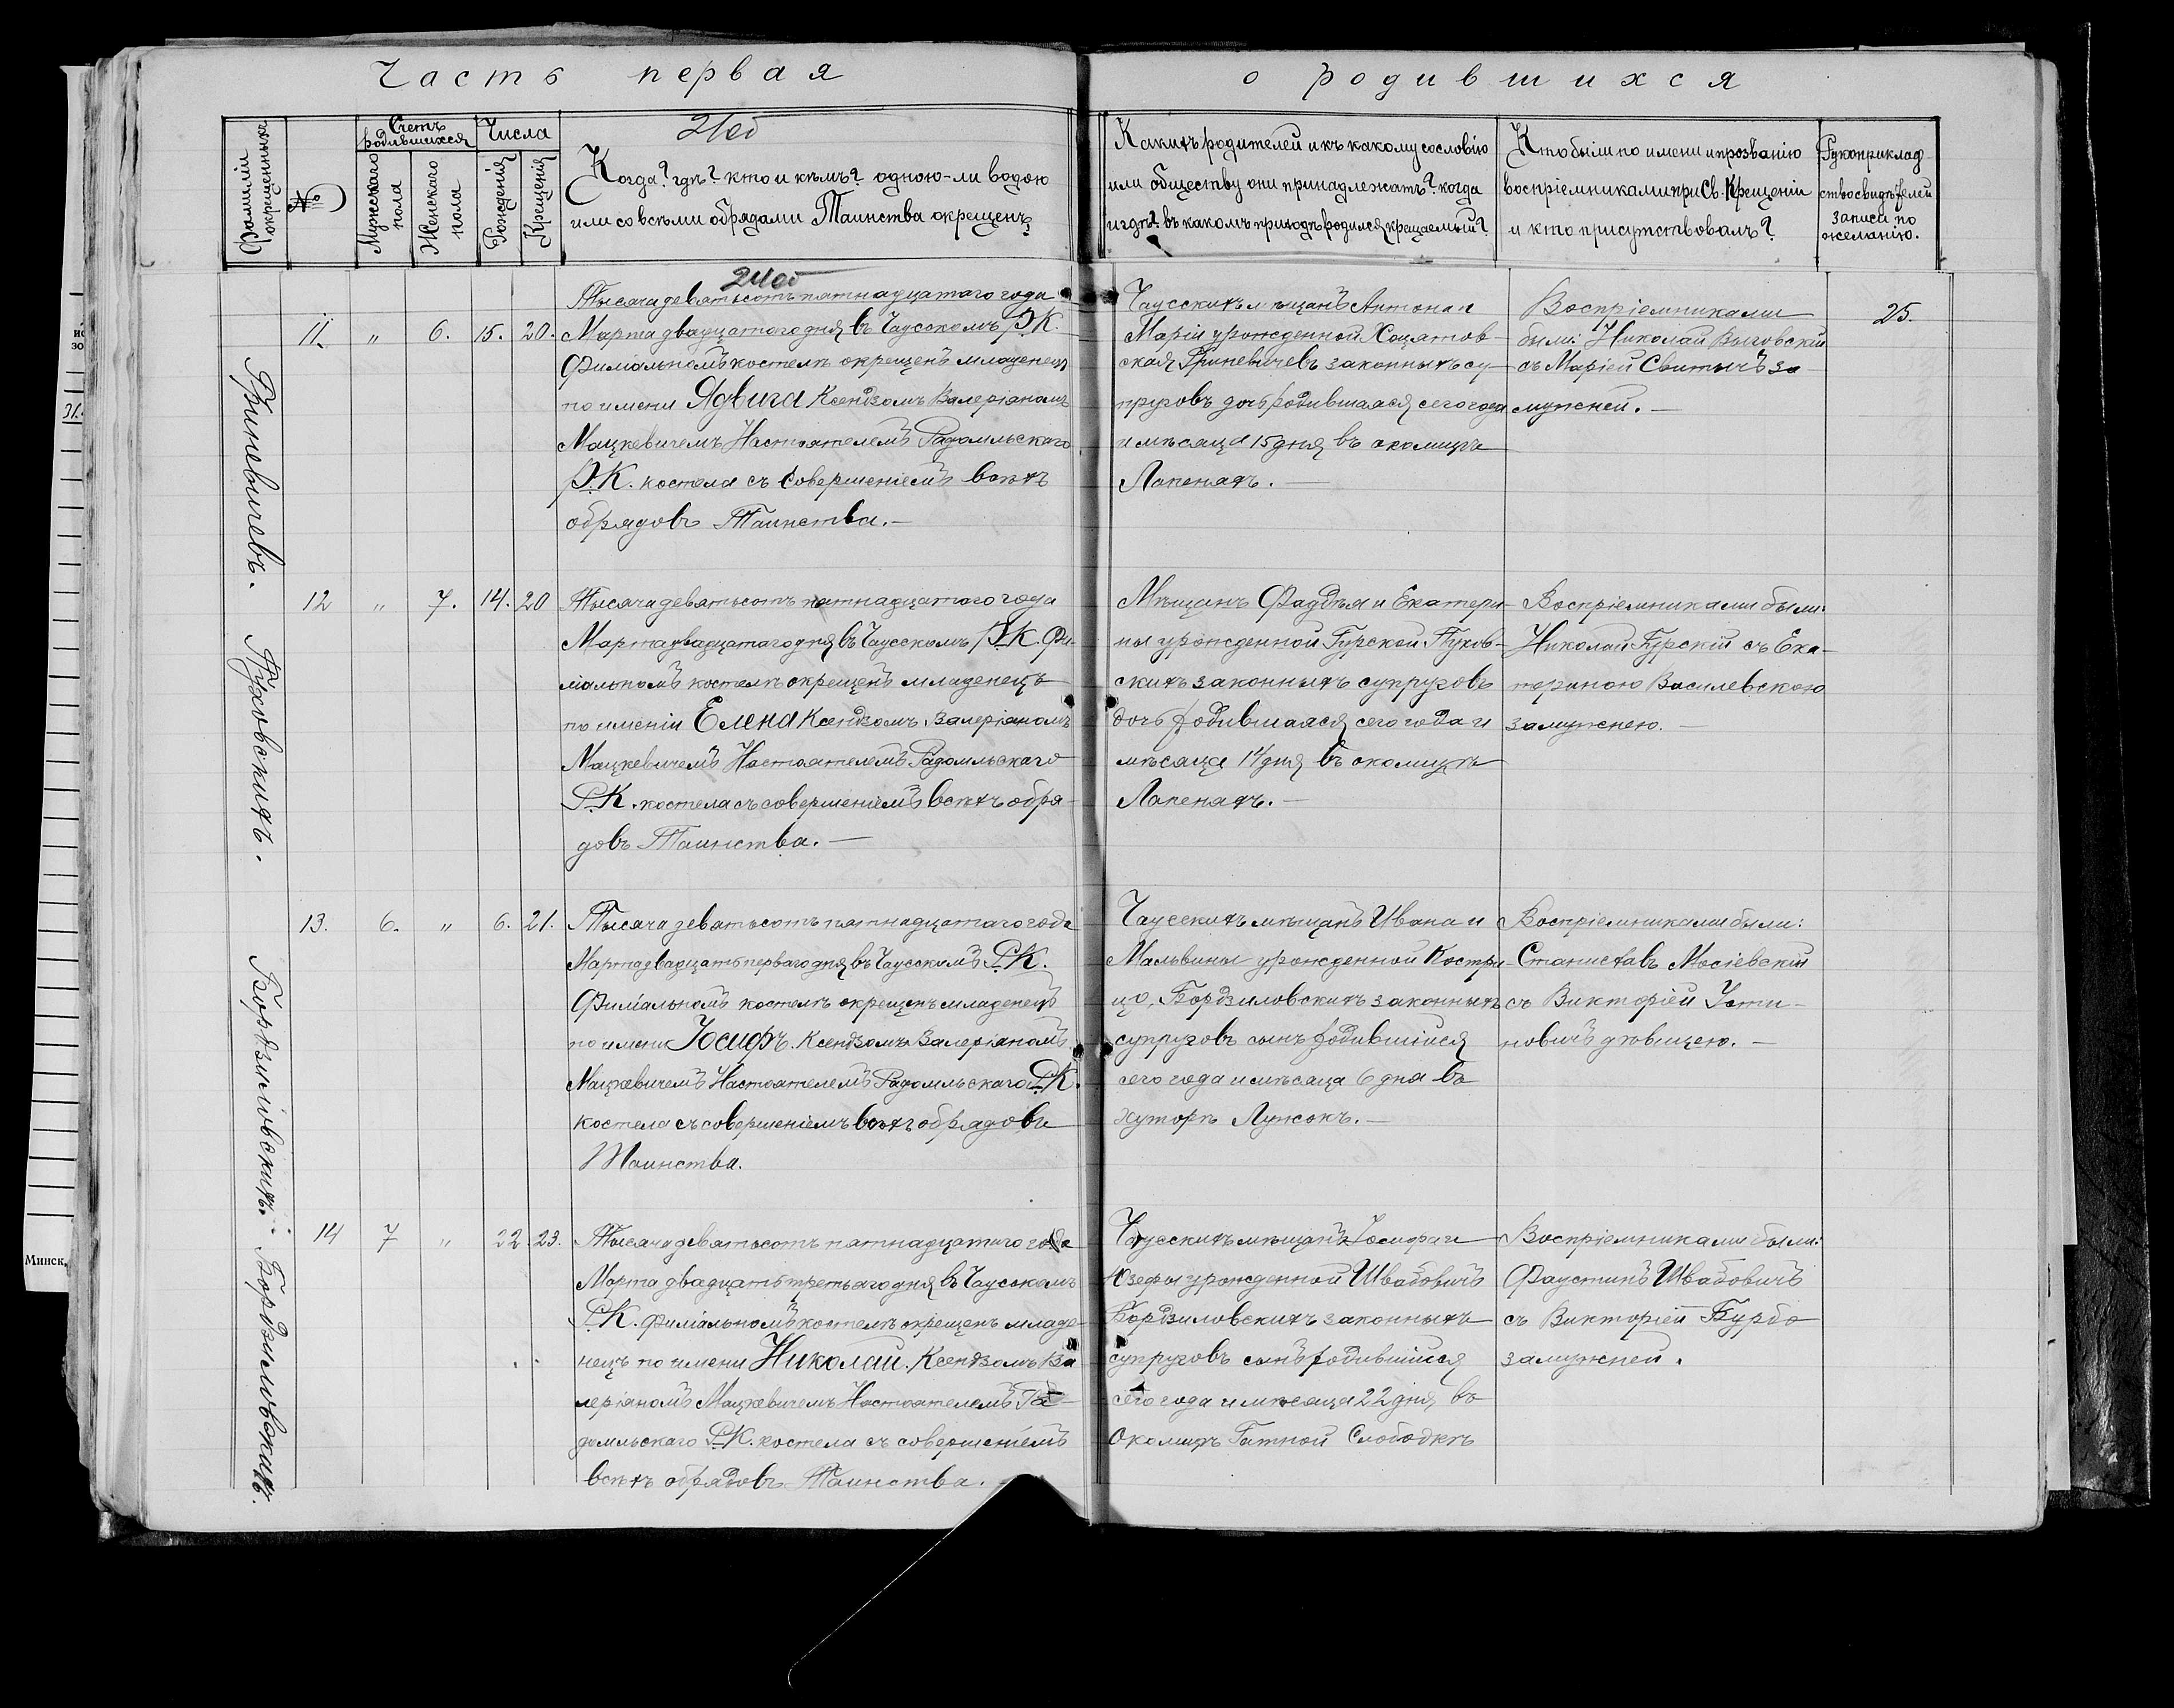 Часть первая
о родившихся
Фамиліи окрещенныхъ
№
Счетъ родившихся
Мужескаго пола
Женскаго пола
Числа
Рожденія
Крещенія
Когда? гдѣ? кто и кѣмъ? одною-ли водою
или со всѣми обрядами Таинства окрещенъ
Какихъ родителей и къ какому сословію
или обществу они принадлежатъ? когда
и гдѣ? въ какомъ приходѣ родился крещаемый?
Кто были по имени и прозванію
воспріемниками при Св. Крещеніи
и кто присутствовалъ?
Рукоприклад-
ство свидѣтелей
записи по
желанію.
Гриневичевъ.
11. " 6. 15. 20.
Тысяча девятьсотъ пятнадцатаго года
Марта двадцатаго дня въ Чаусскомъ Р.К.
Филіальномъ костелѣ окрещенъ младенецъ
по имени Ядвига Ксендзомъ Валеріаномъ
Мацкевичемъ Настоятелемъ Радомльскаго
Р.К. костела съ совершеніемъ всѣхъ
обрядовъ Таинства.—
Чаусскихъ мѣщанъ Антона и
Маріи урожденной Хоцятов-
ская Гриневичевъ законныхъ су-
пруговъ дочь родившаяся сего года
и мѣсяца 15 дня въ околицѣ
Лапенахъ.—
Воспріемниками
были: Николай Выговскій
съ Маріей Свитычъ за-
мужней.—
25.
Пуковскихъ.
12 " 7. 14. 20
Тысяча девятьсотъ пятнадцатаго года
Марта двадцатаго дня въ Чаусскомъ Р.К. Фи-
ліальномъ костелѣ окрещенъ младенецъ
по имени Елена Ксендзомъ Валеріаномъ
Мацкевичемъ Настоятелемъ Радомльскаго
Р.К. костела съ совершеніемъ всѣхъ обря-
довъ Таинства.—
Мѣщанъ Фаддѣя и Екатери-
ны урожденной Гурской Пуков-
скихъ законныхъ супруговъ
дочь родившаяся сего года и
мѣсяца 14 дня въ околицѣ
Лапенахъ.—
Воспріемниками были:
Николай Гурскій съ Ека-
териною Василевскою
замужнею.—
Бордзиловскихъ.
13. 6. " 6. 21.
Тысяча девятьсотъ пятнадцатаго года
Марта двадцать перваго дня въ Чаусскомъ Р.К.
Филіальномъ костелѣ окрещенъ младенецъ
по имени Іосифъ. Ксендзомъ Валеріаномъ
Мацкевичемъ Настоятелемъ Радомльскаго Р.К.
костела съ совершеніемъ всѣхъ обрядовъ
Таинства.
Чаусскихъ мѣщанъ Ивана и
Мальвины урожденной Костри-
цо, Бордзиловскихъ законныхъ
супруговъ сынъ родившійся
сего года и мѣсяца 6 дня въ
хуторѣ Лужокъ.—
Воспріемниками были:
Станиславъ Мосіевскій
съ Викторіей Усти-
новичъ дѣвицею.—
Бордзиловскихъ.
14 7 " 22. 23.
Тысяча девятьсотъ пятнадцатаго года
Марта двадцать третьяго дня въ Чаусскомъ
Р.К. филіальномъ костелѣ окрещенъ младе-
нецъ по имени Николай. Ксендзомъ Ва-
леріаномъ Мацкевичемъ Настоятелемъ Ра-
домльскаго Р.К. костела съ совершеніемъ
всѣхъ обрядовъ Таинства.
Чаусскихъ мѣщанъ Іосифа и
Юзефы урожденной Швабовичъ
Бордзиловскихъ законныхъ
супруговъ сынъ родившійся
сего года и мѣсяца 22 дня въ
околицѣ Гатной Слободкѣ
Воспріемниками были:
Фаустинъ Швабовичъ
съ Викторіей Бурбо
замужней.
Минск.